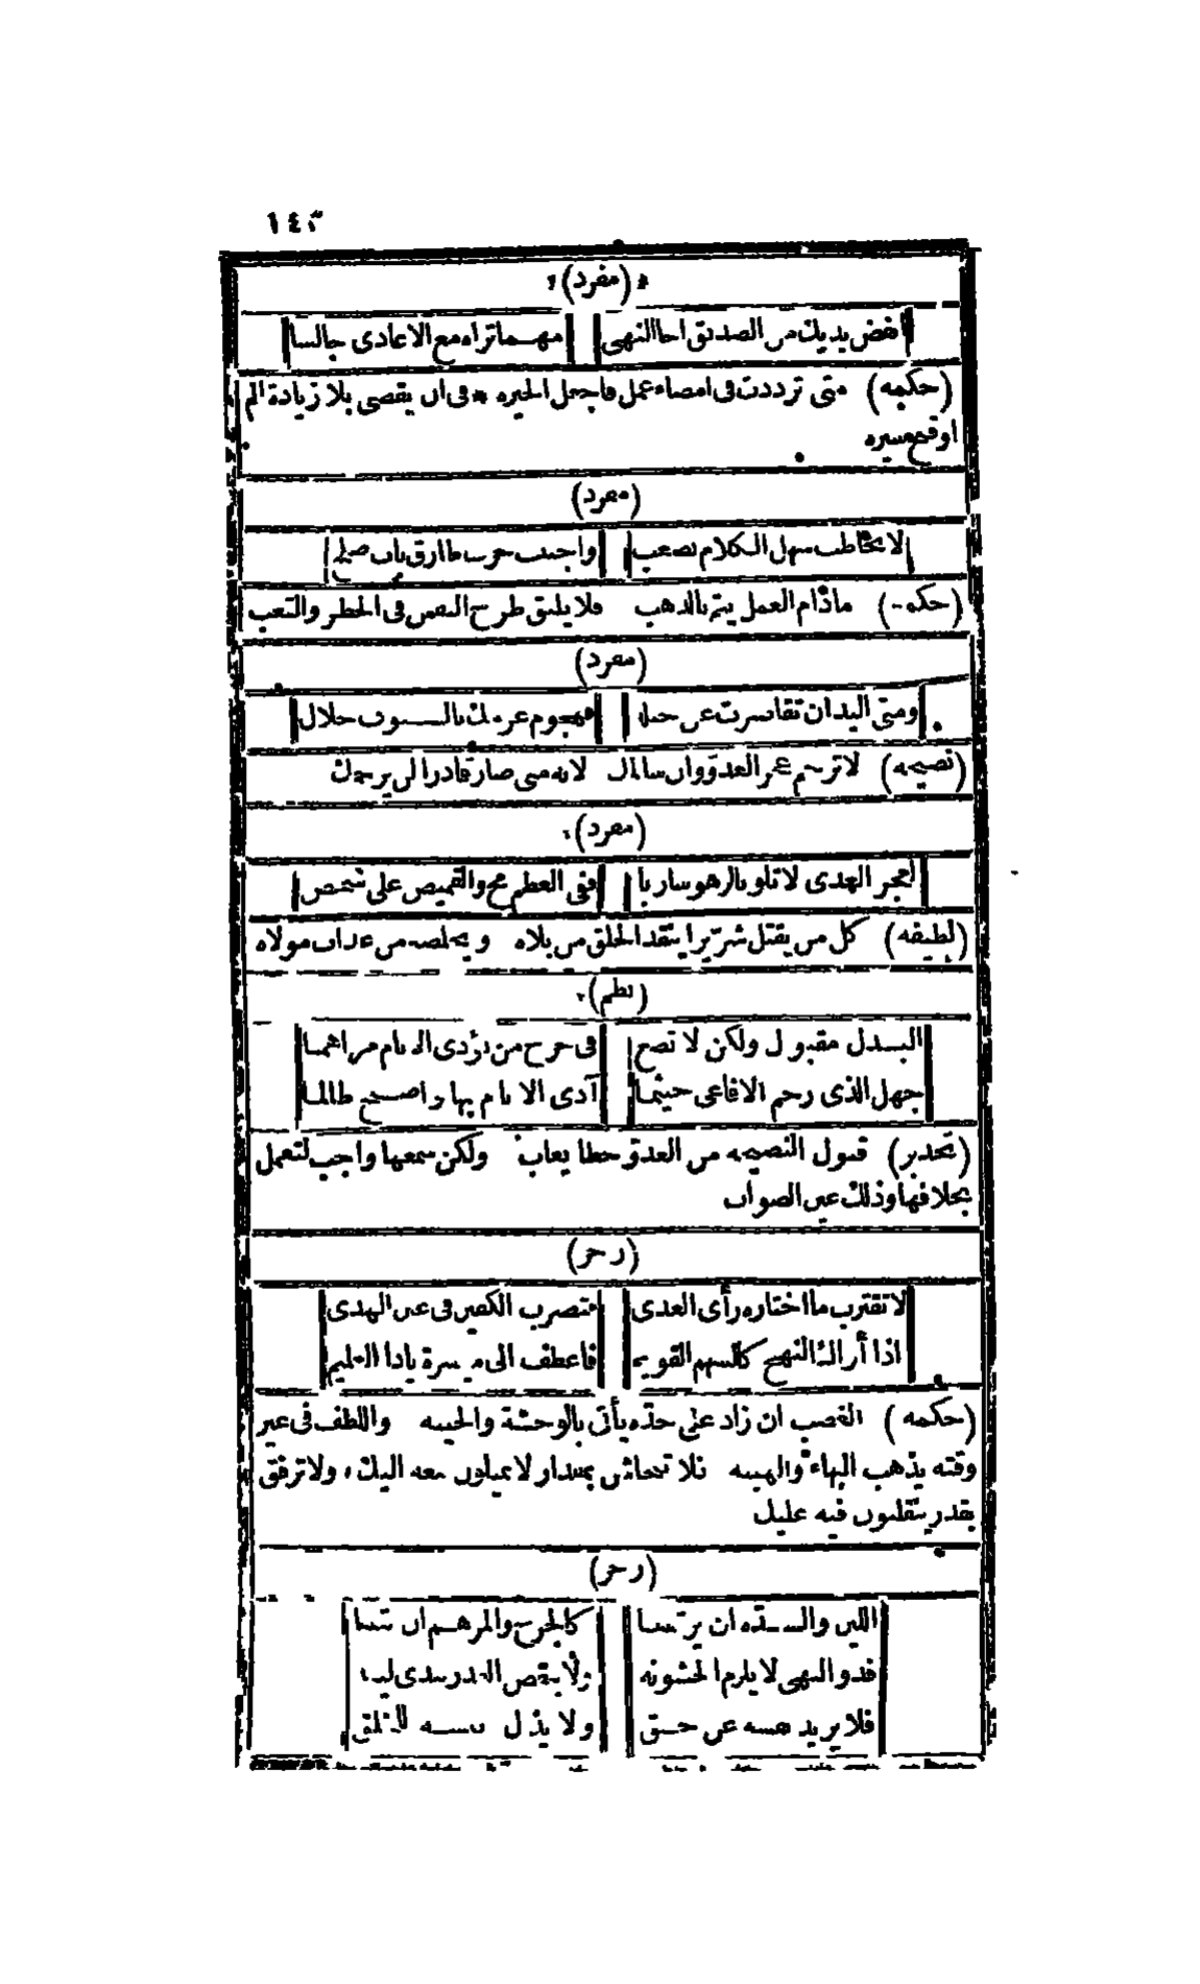 ١٤٣
(مفرد)
انفض يديك من الصديق اخا النهى مهما تراه مع الاعادى جالسا
(حكمه) متى ترددت فى امضاء عمل فاجعل الخيره فى ان يقضى بلا زيادة الم
او قبح سيره
(مفرد)
لا تخاطب سهل الكلام بصعب واجتنب حرب طارق باب صلح
(حكمه) مادام العمل يتم بالذهب فلا يليق طرح النفس فى الخطر والتعب
(مفرد)
ومتى اليدان تقاصرت عن حيلة فهجوم عزمك بالسيوف حلال
(نصيحه) لا ترحم عجز العدو وان سالمك لانه متى صار قادرا لن يرحمك
(مفرد)
لعجز العدى لا تلو بالزهو ساربا ففى العظم مخ والقميص على شخص
(لطيفه) كل من يقتل شريرا ينقذ الخلق من بلاه ويخلصه من عذاب مولاه
(نظم)
البذل مقبول ولكن لا تضع فى جرح من يؤذى الانام مراهما
جهل الذى رحم الافاعى حيثما آذى الانام بها واصبح ظالما
(تحذير) قبول النصيحه من العدو خطا يعاب ولكن سمعها واجب لتعمل
بخلافها وذلك عين الصواب
(رجز)
لا تقترب ما اختاره رأى العدى فتضرب الكفين فى عين الهدى
اذا أراك النهج كالسهم القويم فاعطف الى ميسرة ياذا العليم
(حكمه) الغضب ان زاد على حده يأتى بالوحشة والخيبه واللطف فى غير
وقته يذهب البهاء والهيبه فلا تحاش بمقدار لا يميلون معه اليك، ولا ترفق
بقدر يتقلبون فيه عليك
(رجز)
اللين والشده ان يرتسما كالجرح والمرهم ان تقسما
فذو النهى لا يلزم الخشونه ولا بنقص القدر يبدى لينه
فلا يريد نفسه عن حق ولا يذل نفسه للخلق